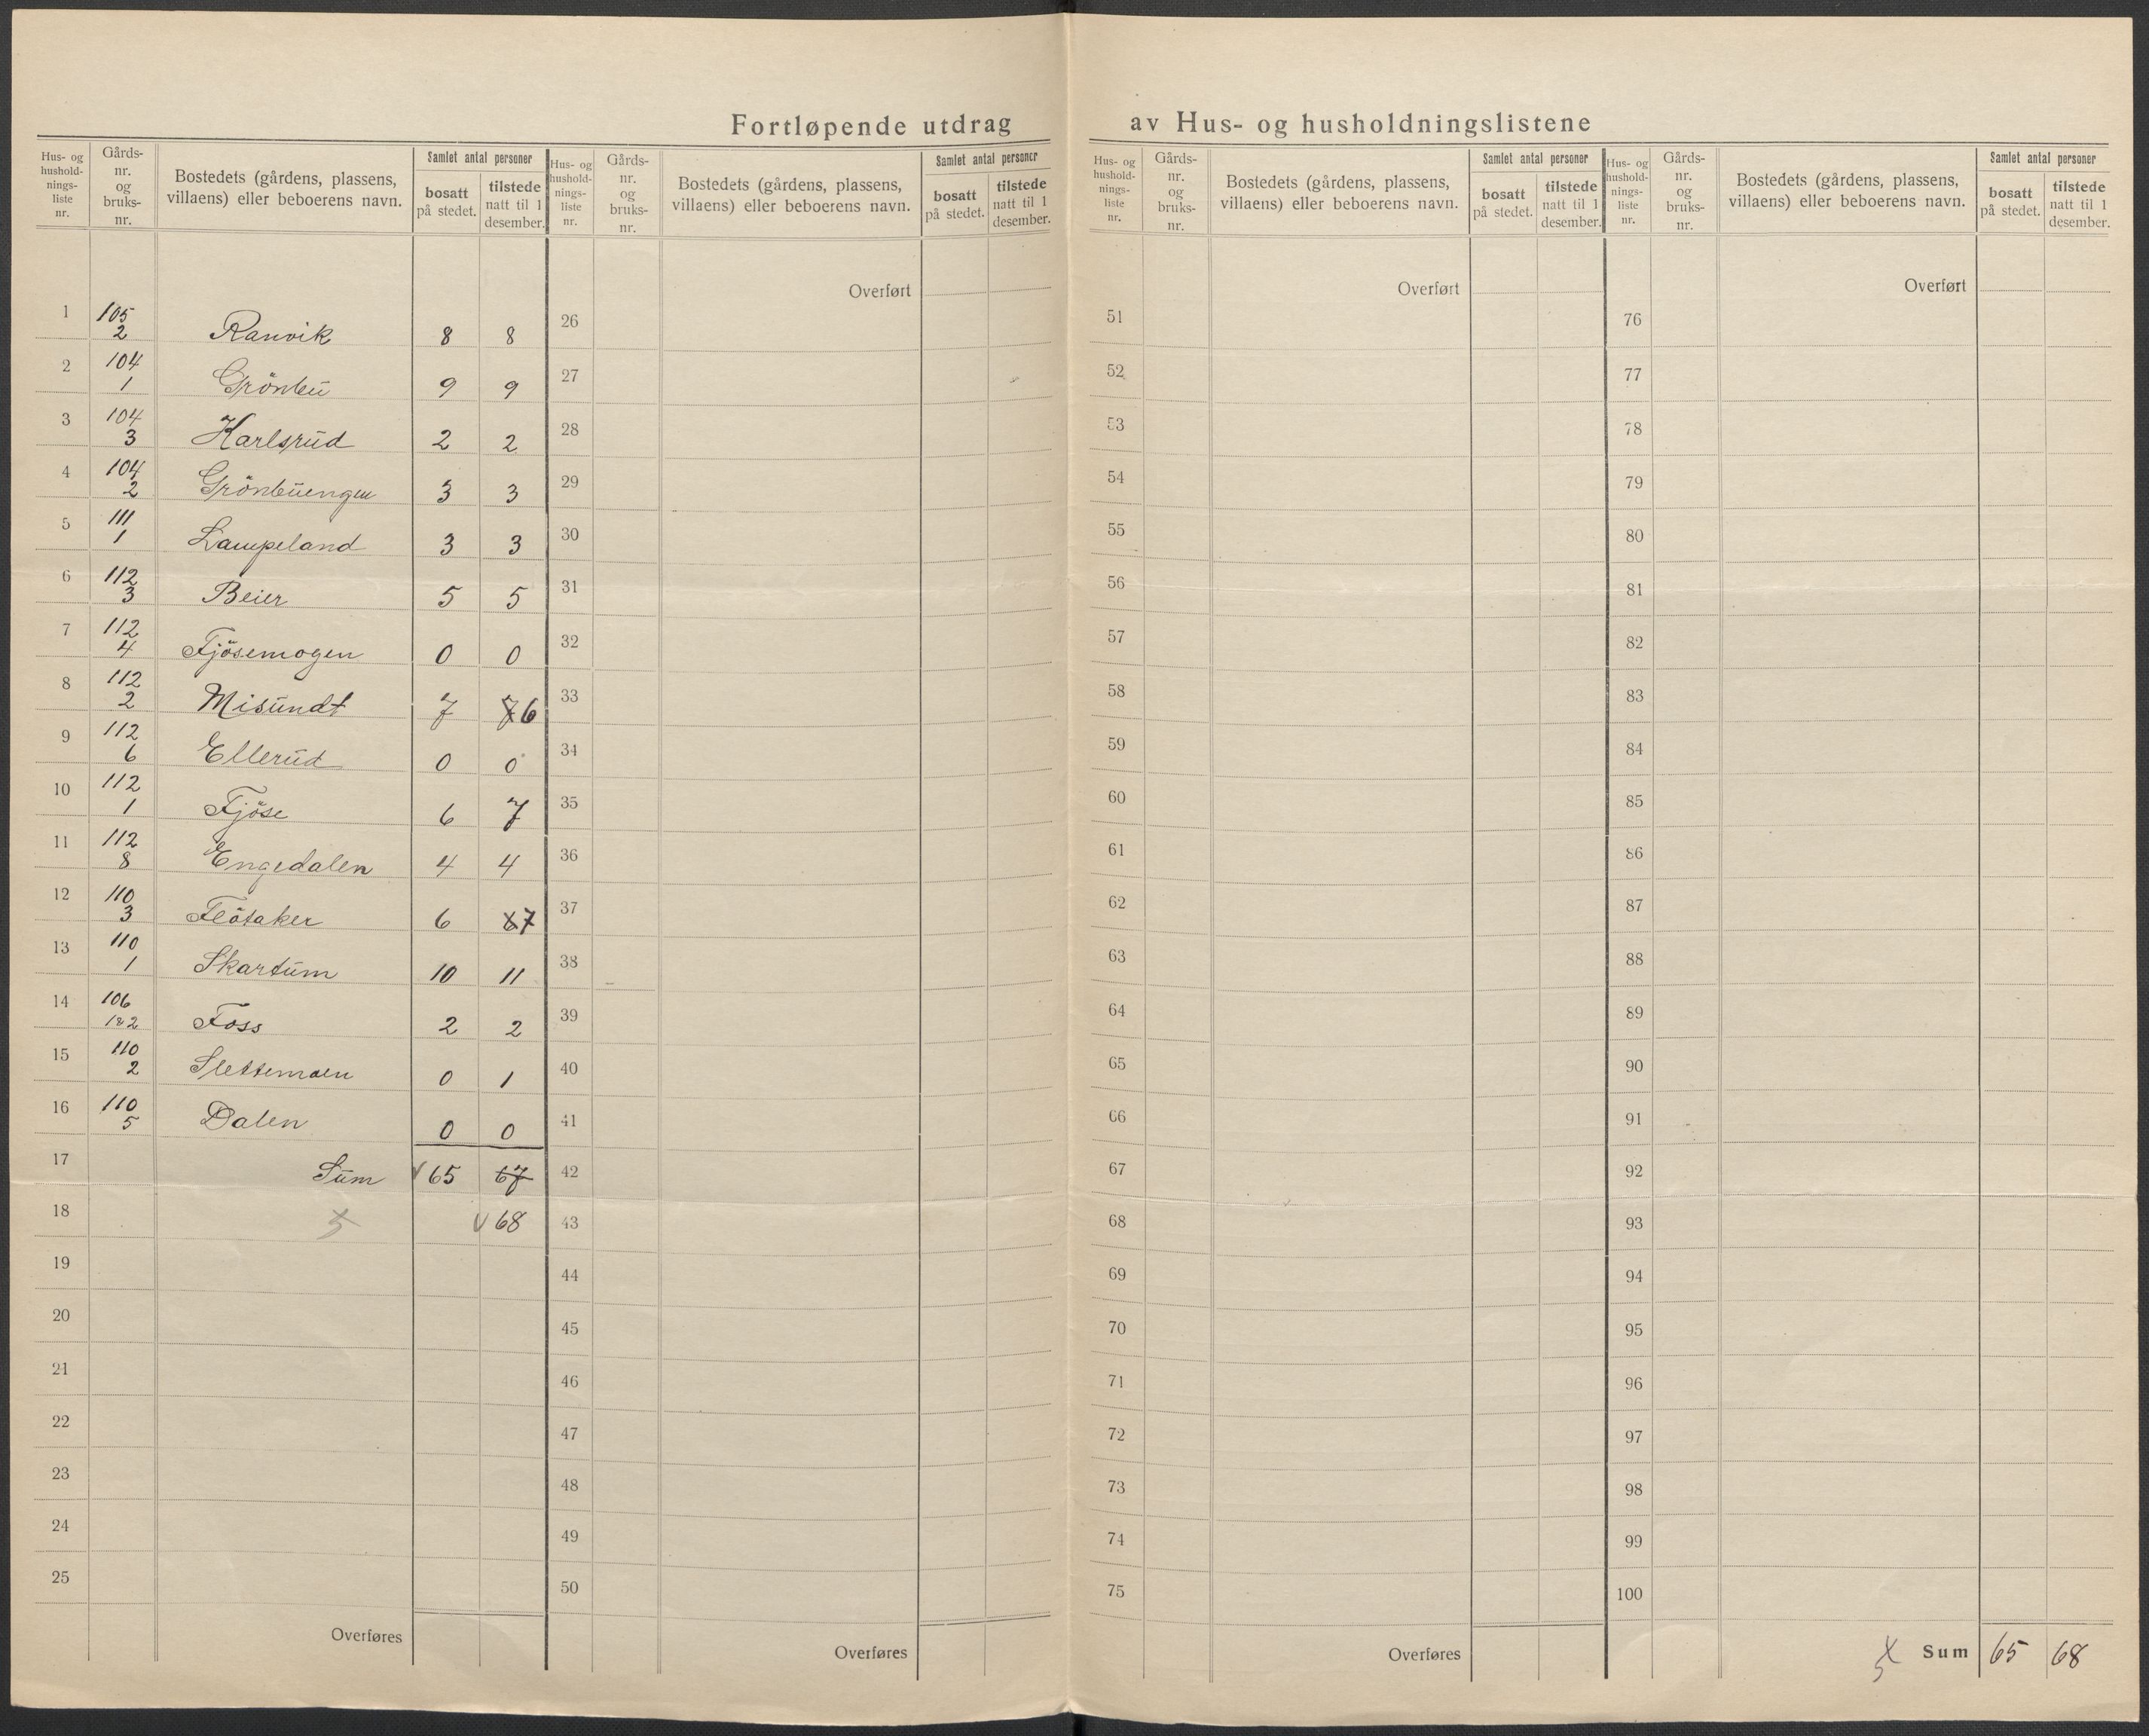 Fortløpende utdrag av Hus- og husholdningslistene
Hus- og hushold-nings-liste nr. Gårds-nr. og bruks-nr. Bostedets (gårdens, plassens, villaens) eller beboerens navn. Samlet antal personer bosatt på stedet. tilstede natt til 1 desember.
Hus- og hushold-nings-liste nr. Gårds-nr. og bruks-nr. Bostedets (gårdens, plassens, villaens) eller beboerens navn. Samlet antal personer bosatt på stedet. tilstede natt til 1 desember.
Hus- og hushold-nings-liste nr. Gårds-nr. og bruks-nr. Bostedets (gårdens, plassens, villaens) eller beboerens navn. Samlet antal personer bosatt på stedet. tilstede natt til 1 desember.
Hus- og hushold-nings-liste nr. Gårds-nr. og bruks-nr. Bostedets (gårdens, plassens, villaens) eller beboerens navn. Samlet antal personer bosatt på stedet. tilstede natt til 1 desember.
Overført Overført Overført
1 105 2 Ranvik 8 8 26 51 76
2 104 1 Grönbu 9 9 27 52 77
3 104 3 Karlsrud 2 2 28 53 78
4 104 2 Grönbuengen 3 3 29 54 79
5 111 1 Lampeland 3 3 30 55 80
6 112 3 Beier 5 5 31 56 81
7 112 4 Fjösemogen 0 0 32 57 82
8 112 2 Misundt 7 7 6 33 58 83
9 112 6 Ellerud 0 0 34 59 84
10 112 1 Fjöse 6 7 35 60 85
11 112 8 Engedalen 4 4 36 61 86
12 110 3 Flötaker 6 6 7 37 62 87
13 110 1 Skartum 10 11 38 63 88
14 106 1&2 Foss 2 2 39 64 89
15 110 2 Slettemoen 0 1 40 65 90
16 110 5 Dalen 0 0 41 66 91
17 Sum 65 67 42 67 92
18 68 43 68 93
19 44 69 94
20 45 70 95
21 46 71 96
22 47 72 97
23 48 73 98
24 49 74 99
25 50 75 100
Overføres Overføres Overføres Sum 65 68